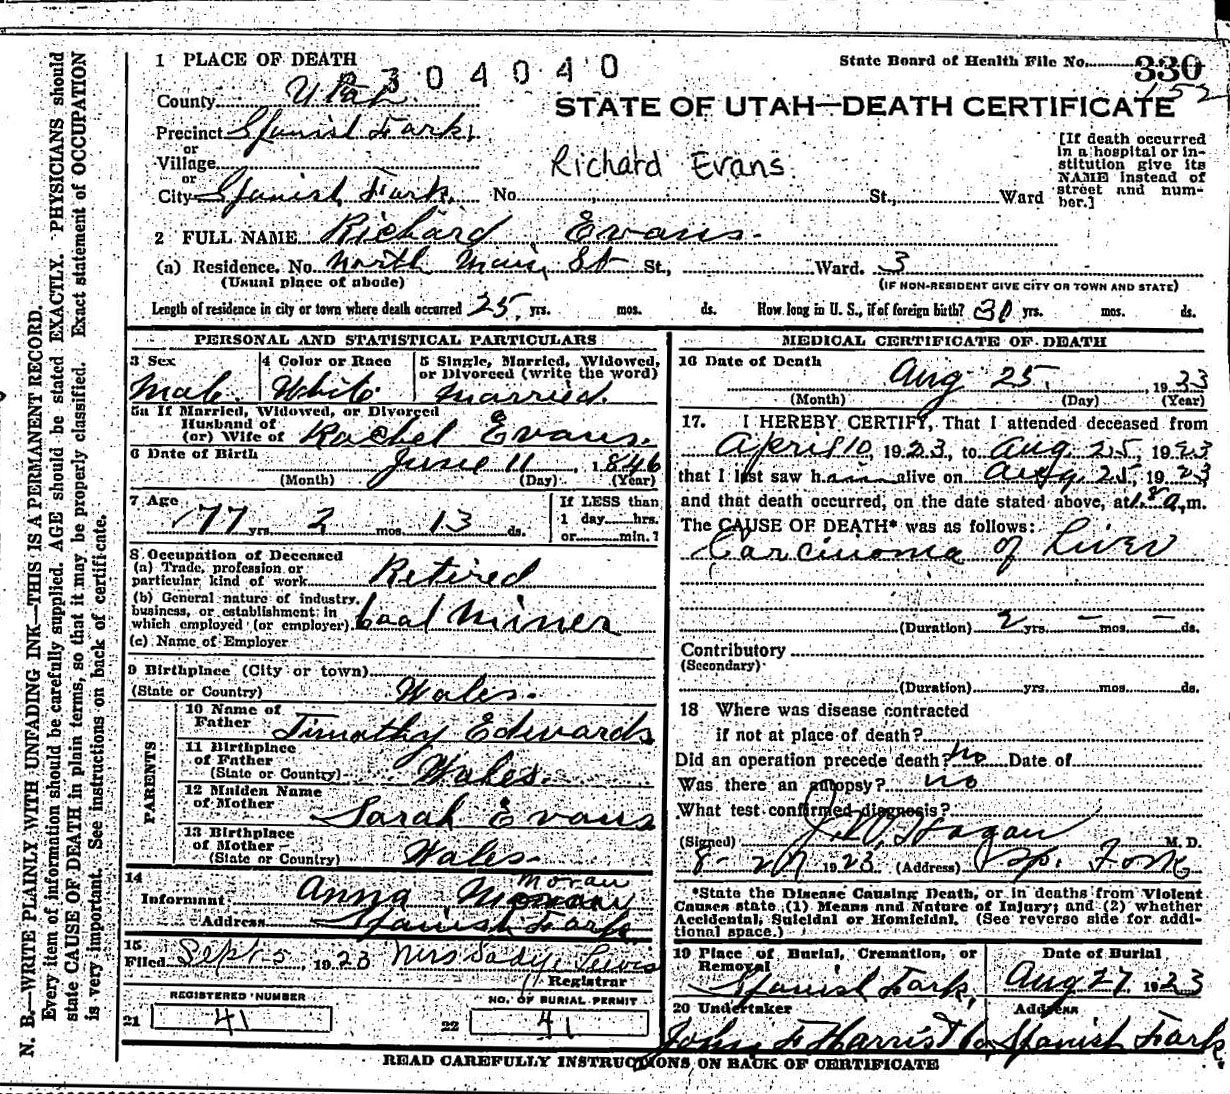 1 PLACE OF DEATH
2304040
State Board of Health File No. 330
152
County Utah
STATE OF UTAH—DEATH CERTIFICATE
Precinct Spanish Fark,
or
Village
or
City Spanish Fark. No. St., Ward
Richard Evans
[If death occurred
in a hospital or in-
stitution give its
NAME instead of
street and num-
ber.]
2 FULL NAME Richard Evans.
(a) Residence. No. North Main St St., Ward. 3
(Usual place of abode)
(IF NON-RESIDENT GIVE CITY OR TOWN AND STATE)
Length of residence in city or town where death occurred 25 yrs. mos. ds. How long in U. S., if of foreign birth? 30 yrs. mos. ds.
PERSONAL AND STATISTICAL PARTICULARS
3 Sex
Male.
4 Color or Race
White.
5 Single, Married, Widowed,
or Divorced (write the word)
Married.
5a If Married, Widowed, or Divorced
Husband of
(or) Wife of Rachel Evans.
6 Date of Birth June 11, 1846
(Month) (Day) (Year)
7 Age
77 yrs. 2 mos. 13 ds.
If LESS than
1 day hrs.
or min.?
8 Occupation of Deceased
(a) Trade, profession or
particular kind of work Retired
(b) General nature of industry,
business, or establishment in
which employed (or employer) Coal Miner
(c) Name of Employer
9 Birthplace (City or town)
(State or Country) Wales.
PARENTS
10 Name of
Father Timothy Edwards
11 Birthplace
of Father
(State or Country) Wales.
12 Maiden Name
of Mother Sarah Evans
13 Birthplace
of Mother
(State or Country) Wales.
14
Informant Anna Moran
Address Spanish Fark
15
Filed Sept 5, 1923 Mrs Sadye Lewis
Registrar
REGISTERED NUMBER
21 41
NO. OF BURIAL PERMIT
22 41
MEDICAL CERTIFICATE OF DEATH
16 Date of Death
Aug 25, 1923
(Month) (Day) (Year)
17. I HEREBY CERTIFY, That I attended deceased from
April 10, 1923, to Aug. 25, 1923
that I last saw him alive on Aug. 25, 1923
and that death occurred, on the date stated above, at a.m.
The CAUSE OF DEATH* was as follows:
Carcinoma of Liver
(Duration) 2 yrs. — mos. — ds.
Contributory
(Secondary)
(Duration) yrs. mos. ds.
18 Where was disease contracted
if not at place of death?
Did an operation precede death? no Date of
Was there an autopsy? no
What test confirmed diagnosis?
(Signed) Hagan M. D.
8-27 1923 (Address) Sp. Fork
*State the Disease Causing Death, or in deaths from Violent
Causes state (1) Means and Nature of Injury; and (2) whether
Accidental, Suicidal or Homicidal. (See reverse side for addi-
tional space.)
19 Place of Burial, Cremation, or
Removal
Spanish Fark,
Date of Burial
Aug 27, 1923
20 Undertaker Address
John F Harris Co, Spanish Fark.
READ CAREFULLY INSTRUCTIONS ON BACK OF CERTIFICATE
N. B.—WRITE PLAINLY WITH UNFADING INK—THIS IS A PERMANENT RECORD.
Every item of information should be carefully supplied. AGE should be stated EXACTLY. PHYSICIANS should
state CAUSE OF DEATH in plain terms, so that it may be properly classified. Exact statement of OCCUPATION
is very important. See instructions on back of certificate.